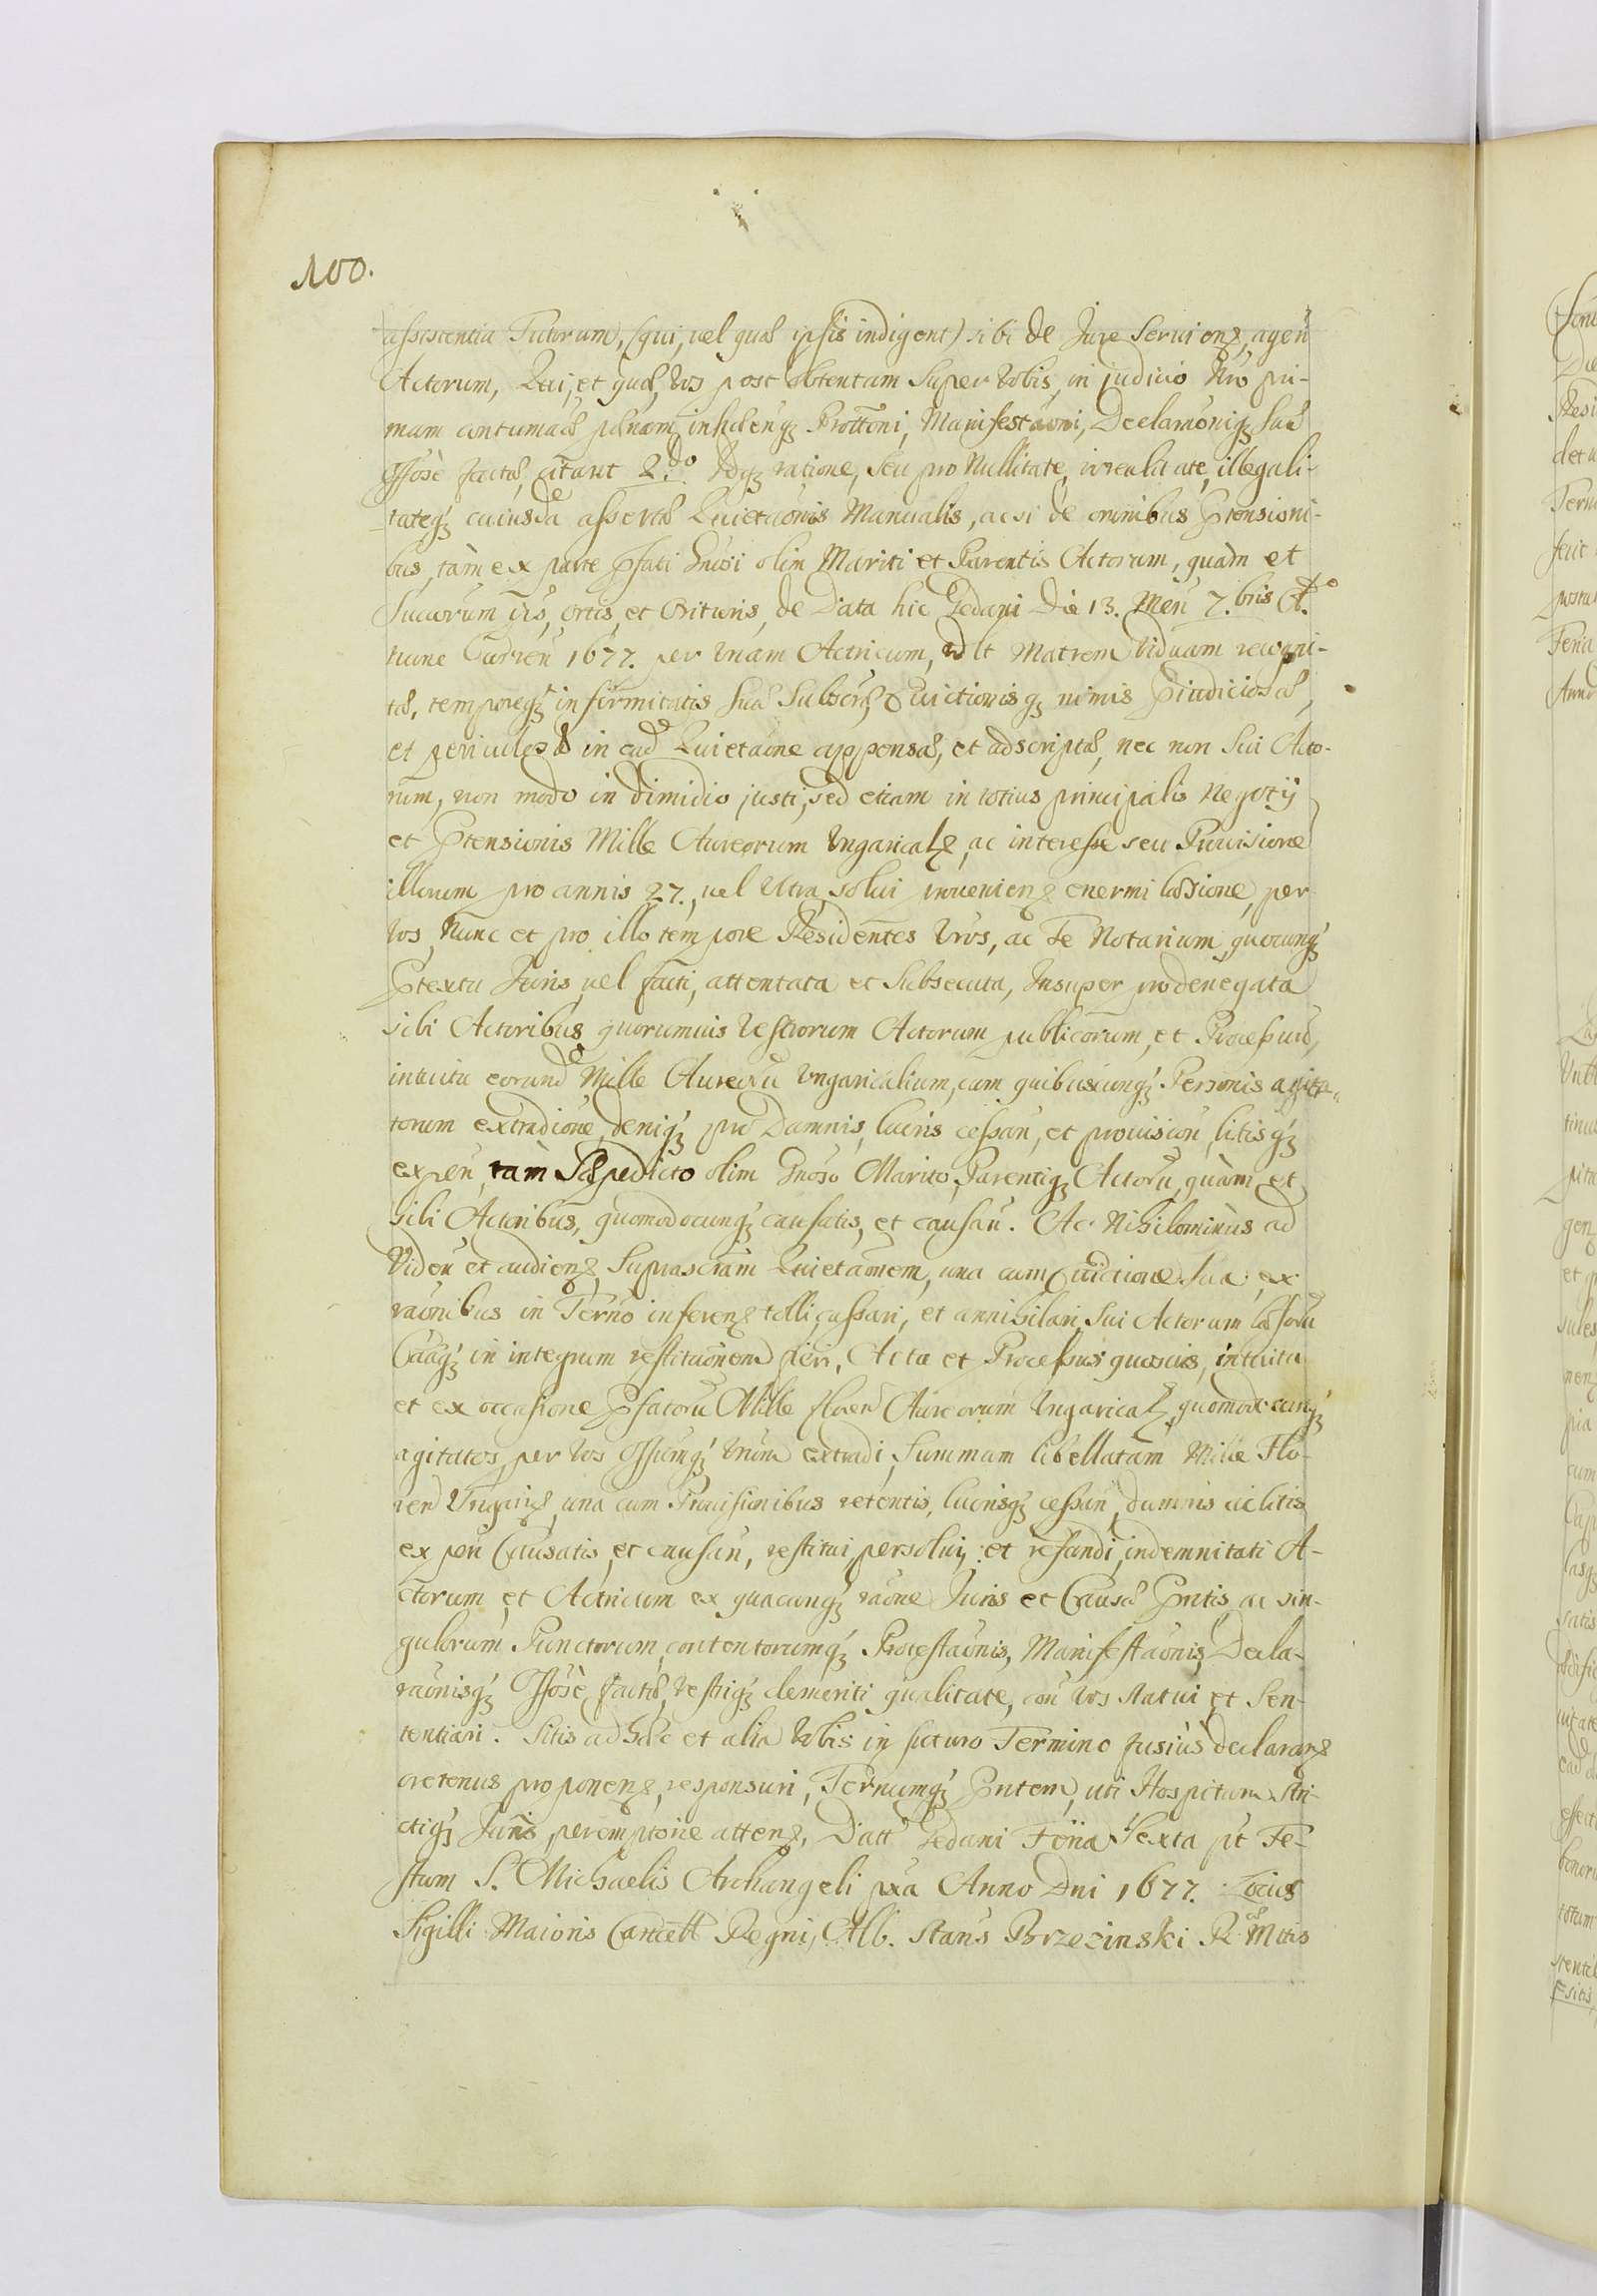 100.
assistentia Tutorum, (qui, uel quae ipsis indigent) sibi de Jure Seruien, agen
Actorum, Qui, et quae, Vos post obtentam super Vobis, in judicio Nro pri-
mam contumaciae paenam, inhaerenq Prottõni, Manifestaõni, Declaraõniq suae
Offõse factae, citant 2do. Idq ratione, seu pro Nullitate, irrealitate, illegali-
tateq cuiusdẽ assertae Quietaõnis Manualis, acsi de omnibus Ptensioni-
bus, tàm ex parte Pfati Gnosi olim Mariti et Parentis Actorum, quàm et
Suarum ijs, ortis, et Orituris, de Data hic Gedani Die 13. Men 7.bris Ao.
nunc Curren 1677. per Vnam Actricum, vdlt Matrem Viduam recogni-
tae, temporeq infirmitatis suae Subscrae, Euictionisq nimis Piudiciosae,
et periculosae in eadẽ Quietaõne appensae, et adscriptae, nec non Sui Acto-
rum, non modo in dimidio justi, sed etiam in totius principalis Negotij
et Ptensionis Mille Aureorum Vngarical, ac interesse seu Prouisione
illorum pro annis 27., uel Vltra, solui inuenien enermi laesione, per
Vos Nunc et pro illo tempore Residentes Vros, ac Te Notarium, quocunq
Ptextu Juris, uel facti, attentata et Subsecuta, Insuper pro denegata
sibi Actoribus quorumuis Vestrorum Actorum publicorum, et Processuũ,
intuitu eorundẽ Mille Aureorũ Vngaricalium, cum quibuscunq Personis agita-
torum extradione, deniq pro Damnis, lucris cessan, et prouision, litisq
expen, tàm Saepedicto olim Gnoso Marito, Parentiq Actorũ, quàm et
Sibi Actoribus, quomodocunq causatis, et causan. Ac Nihilominùs ad
Viden et audien, Suprascram Quietaõnem, una cum Euictione sua, ex
raõnibus in Terno inferen tolli, cassari, et annihilari, Sui Actorum laesorũ
Caaq in integrum restituõnem fieri, Acta et Processus quosuis, intuitu
et ex occasione Pfatorũ Mille floren Aureorum Vngarical, quomodocunq
agitatos, per Vos Offiumq Vrum extradi, Summam libellatam Mille Flo-
ren Vngaric, una cum Prouisionibus retentis, lucrisq cessan, damnis ac litis
expen Causatis, et causan, restitui, persolui, et refundi, indemnitati A-
ctorum et Actricum ex quacunq raõne Juris et Causae Pntis, ac sin-
gulorum Punctorum, contentorumq Protestaõnis, Manifestaõnis, Decla-
raõnisq Offõse factae, Vestriq demeriti qualitate, con Vos statui, et Sen-
tentiari. Sitis ad haec et alia Vobis in futuro Termino fusiùs declaran
oretenus proponen, responsuri, Ternumq Pntem, uti Hospitum stri-
ctiq Juris, peremptorie atten. Datt Gedani Feria Sexta pt Fe-
stum S. Michaelis Archangeli pxa Anno Dni 1677. Locus
Sigilli Maioris Cancell Regni, Alb. Stans Brzezinski R Mttis